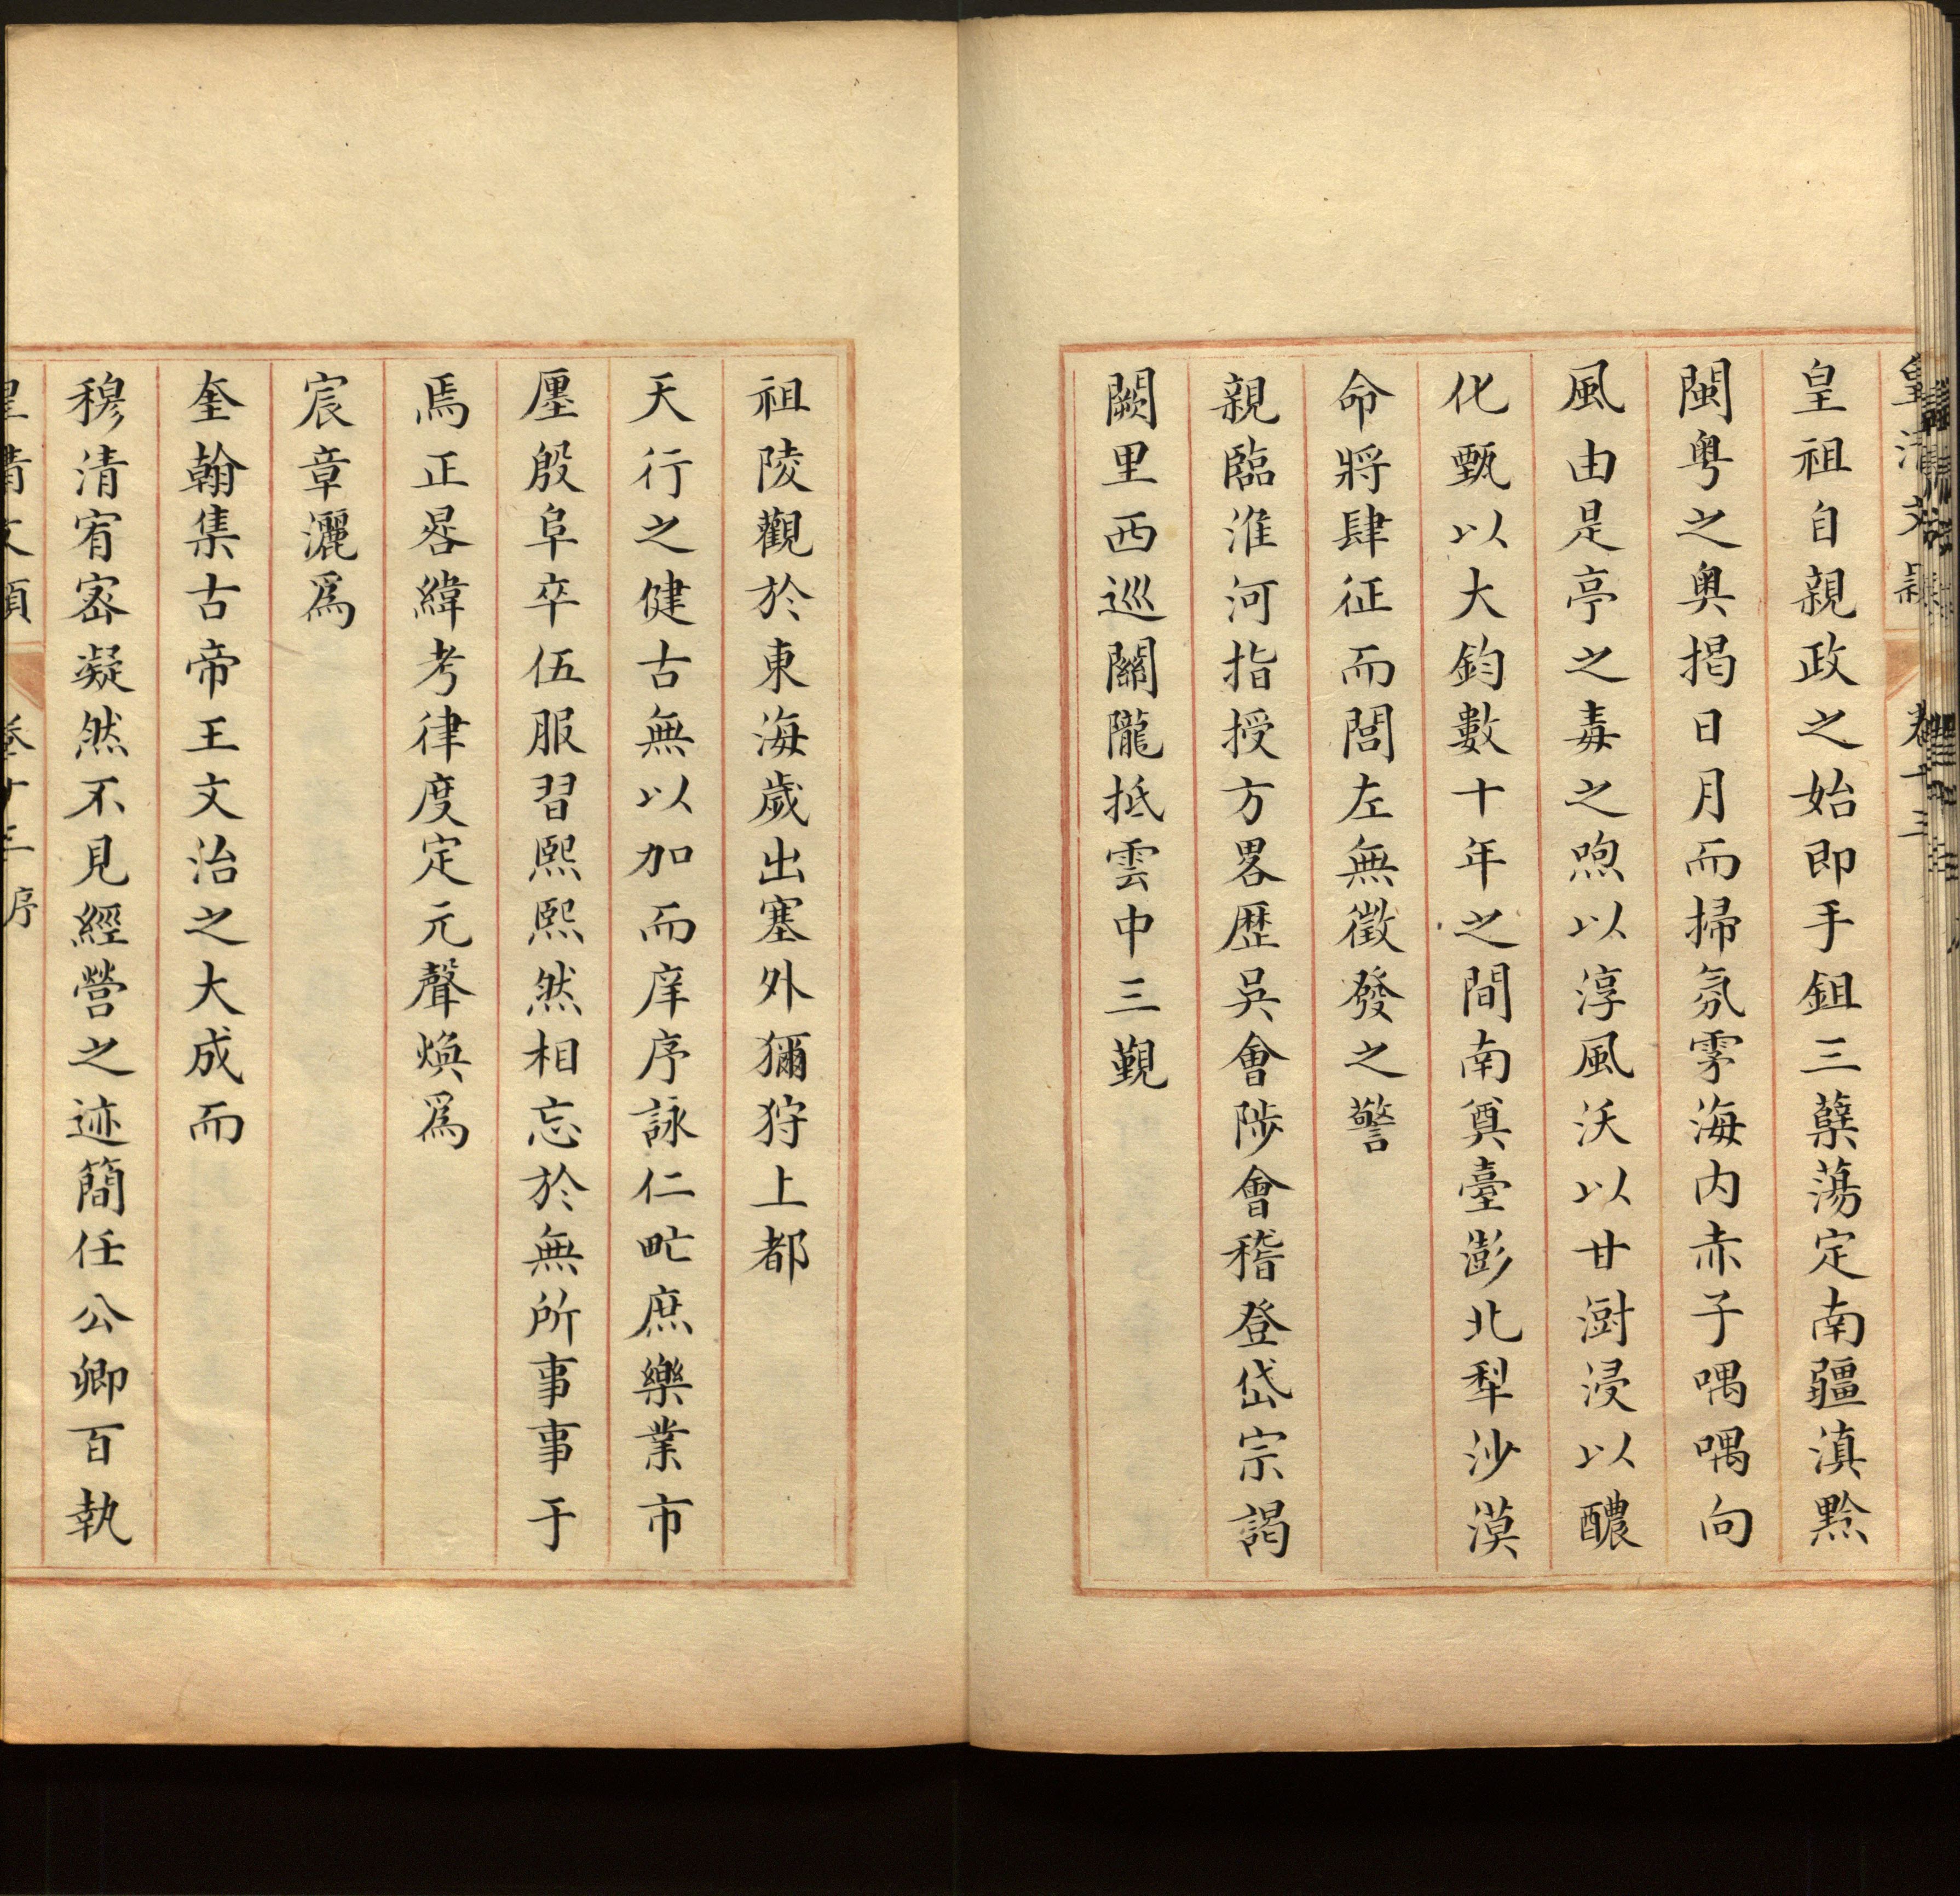 皇清文穎 卷十三
皇祖自親政之始即手鉏三蘖蕩定南疆滇黔
閩粤之奥揭日月而掃氛雺海内赤子喁喁向
風由是亭之毒之煦以淳風沃以甘澍浸以醲
化甄以大鈞數十年之間南奠臺澎北犁沙漠
命將肆征而閭左無徵發之警
親臨淮河指授方畧歴吳會陟會稽登岱宗謁
闕里西巡關隴抵雲中三覲
祖陵觀於東海歲出塞外獮狩上都
天行之健古無以加而庠序詠仁甿庶樂業市
廛殷阜卒伍服習熙熙然相忘於無所事事于
焉正晷緯考律度定元聲煥爲
宸章灑爲
奎翰集古帝王文治之大成而
穆清宥宻凝然不見經營之迹簡任公卿百執
皇清文穎 卷十三 序